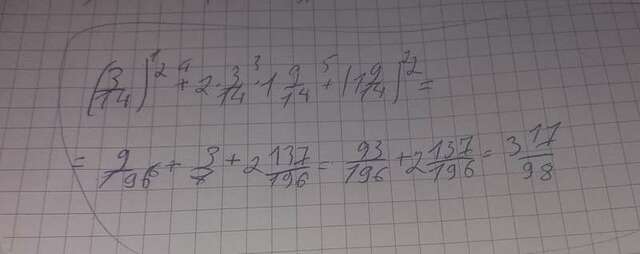 (3/14)^2 + 2·3/14·1 9/14 + (1 9/14)^2 =
= 9/196 + 3/7 + 2 137/196 = 93/196 + 2 137/196 = 3 17/98